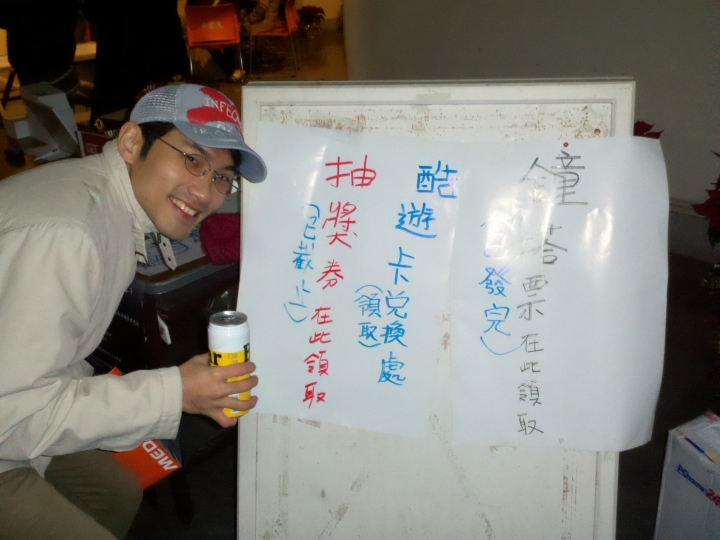 鐘塔票在此領取
(已發完)
酷遊卡兌換處
(領取)
抽獎券在此領取
(已截止)
MED